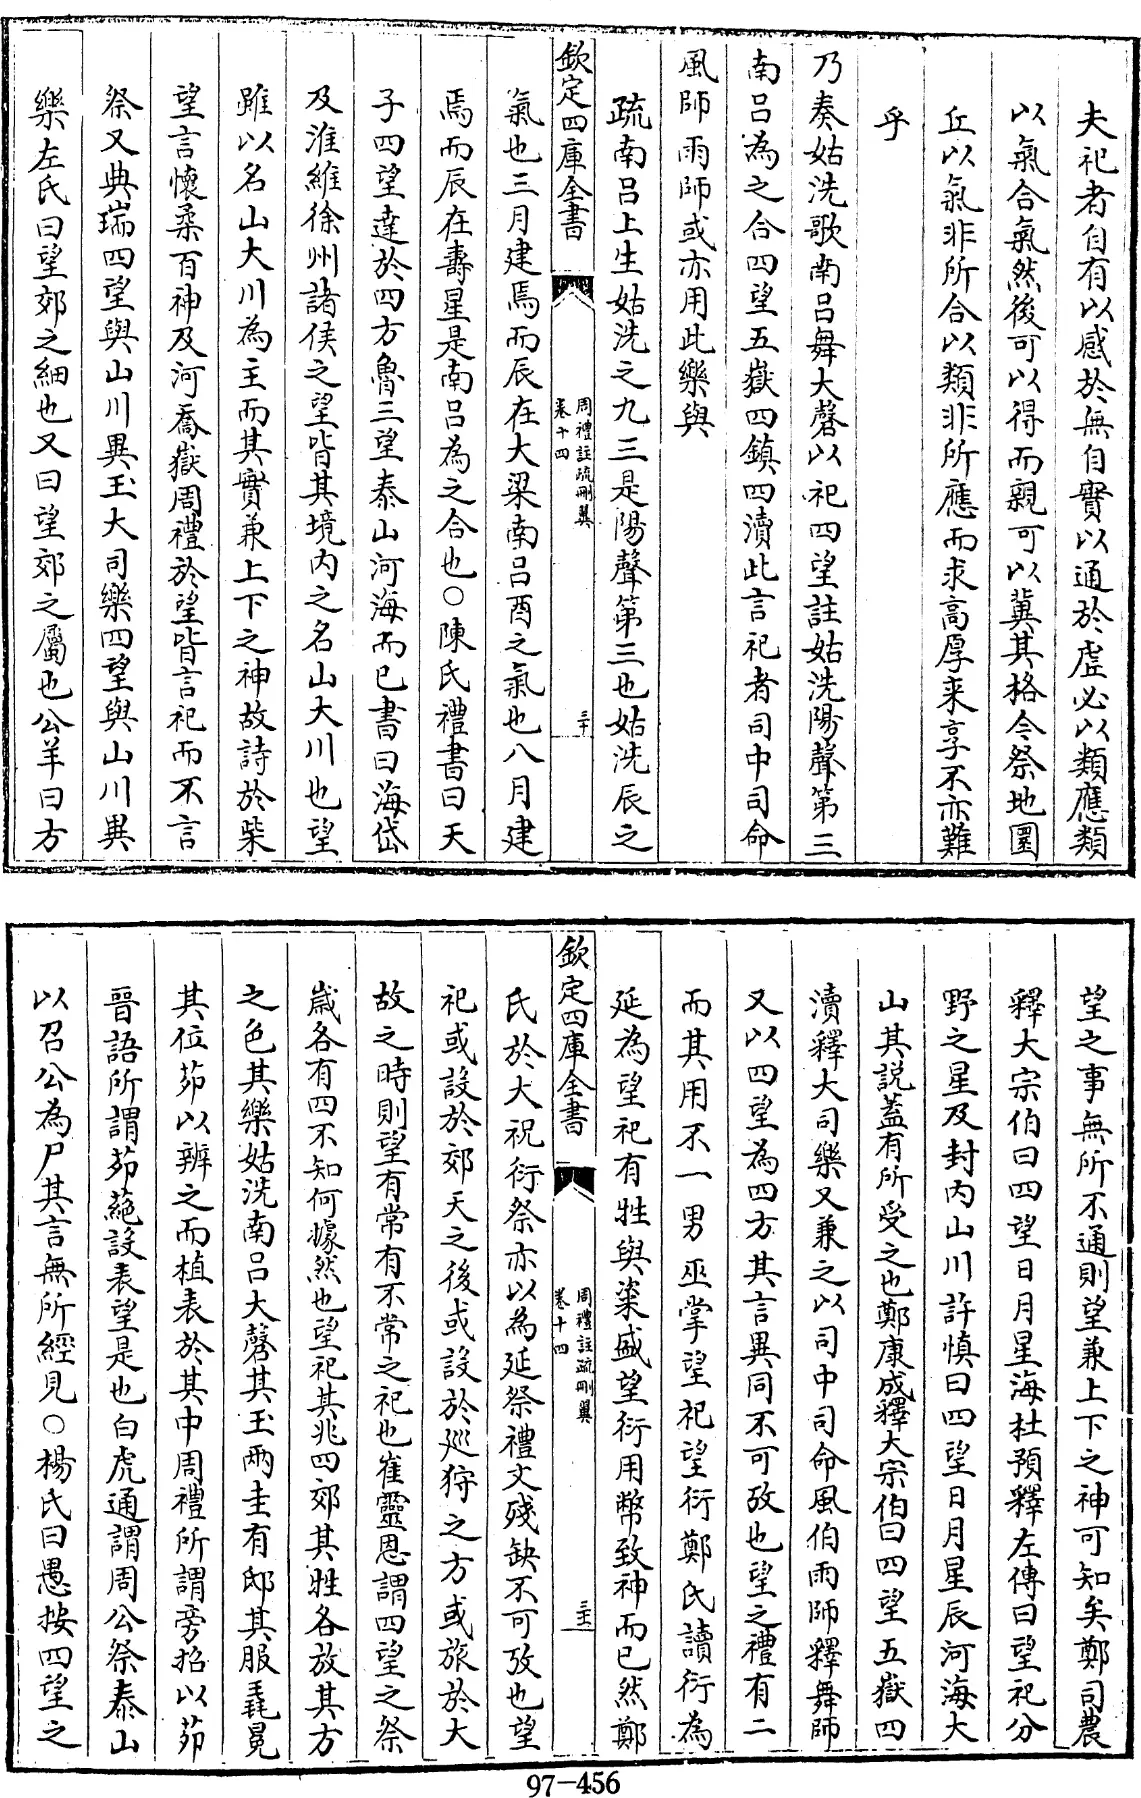 夫祀者自有以感於無自實以通於虚必以類應類
以氣合氣然後可以得而親可以冀其格今祭地圜
丘以氣非所合以類非所應而求高厚來享不亦難
乎
乃奏姑洗歌南呂舞大磬以祀四望註姑洗陽聲第三
南呂為之合四望五嶽四鎮四瀆此言祀者司中司命
風師雨師或亦用此樂與
疏南呂上生姑洗之九三是陽聲第三也姑洗辰之
欽定四庫全書
周禮註疏刪翼
卷十四
三十
氣也三月建焉而辰在大梁南呂酉之氣也八月建
焉而辰在壽星是南呂為之合也○陳氏禮書曰天
子四望達於四方魯三望泰山河海而已書曰海岱
及淮維徐州諸侯之望皆其境内之名山大川也望
雖以名山大川為主而其實兼上下之神故詩於柴
望言懷柔百神及河喬嶽周禮於望皆言祀而不言
祭又典瑞四望與山川異玉大司樂四望與山川異
樂左氏曰望郊之細也又曰望郊之屬也公羊曰方
望之事無所不通則望兼上下之神可知矣鄭司農
釋大宗伯曰四望日月星海杜預釋左傳曰望祀分
野之星及封内山川許慎曰四望日月星辰河海大
山其説蓋有所受之也鄭康成釋大宗伯曰四望五嶽四
瀆釋大司樂又兼之以司中司命風伯雨師釋舞師
又以四望為四方其言異同不可攷也望之禮有二
而其用不一男巫掌望祀望衍鄭氏讀衍為
延為望祀有牲與粢盛望衍用幣致神而已然鄭
欽定四庫全書
周禮註疏刪翼
卷十四
三十一
氏於大祝衍祭亦以為延祭禮文殘缺不可攷也望
祀或設於郊天之後或設於巡狩之方或旅於大
故之時則望有常有不常之祀也崔靈恩謂四望之祭
歲各有四不知何據然也望祀其兆四郊其牲各放其方
之色其樂姑洗南呂大磬其玉兩圭有邸其服毳冕
其位茆以辨之而植表於其中周禮所謂旁招以茆
晉語所謂茆蕝設表望是也白虎通謂周公祭泰山
以召公為尸其言無所經見○楊氏曰愚按四望之
97-456